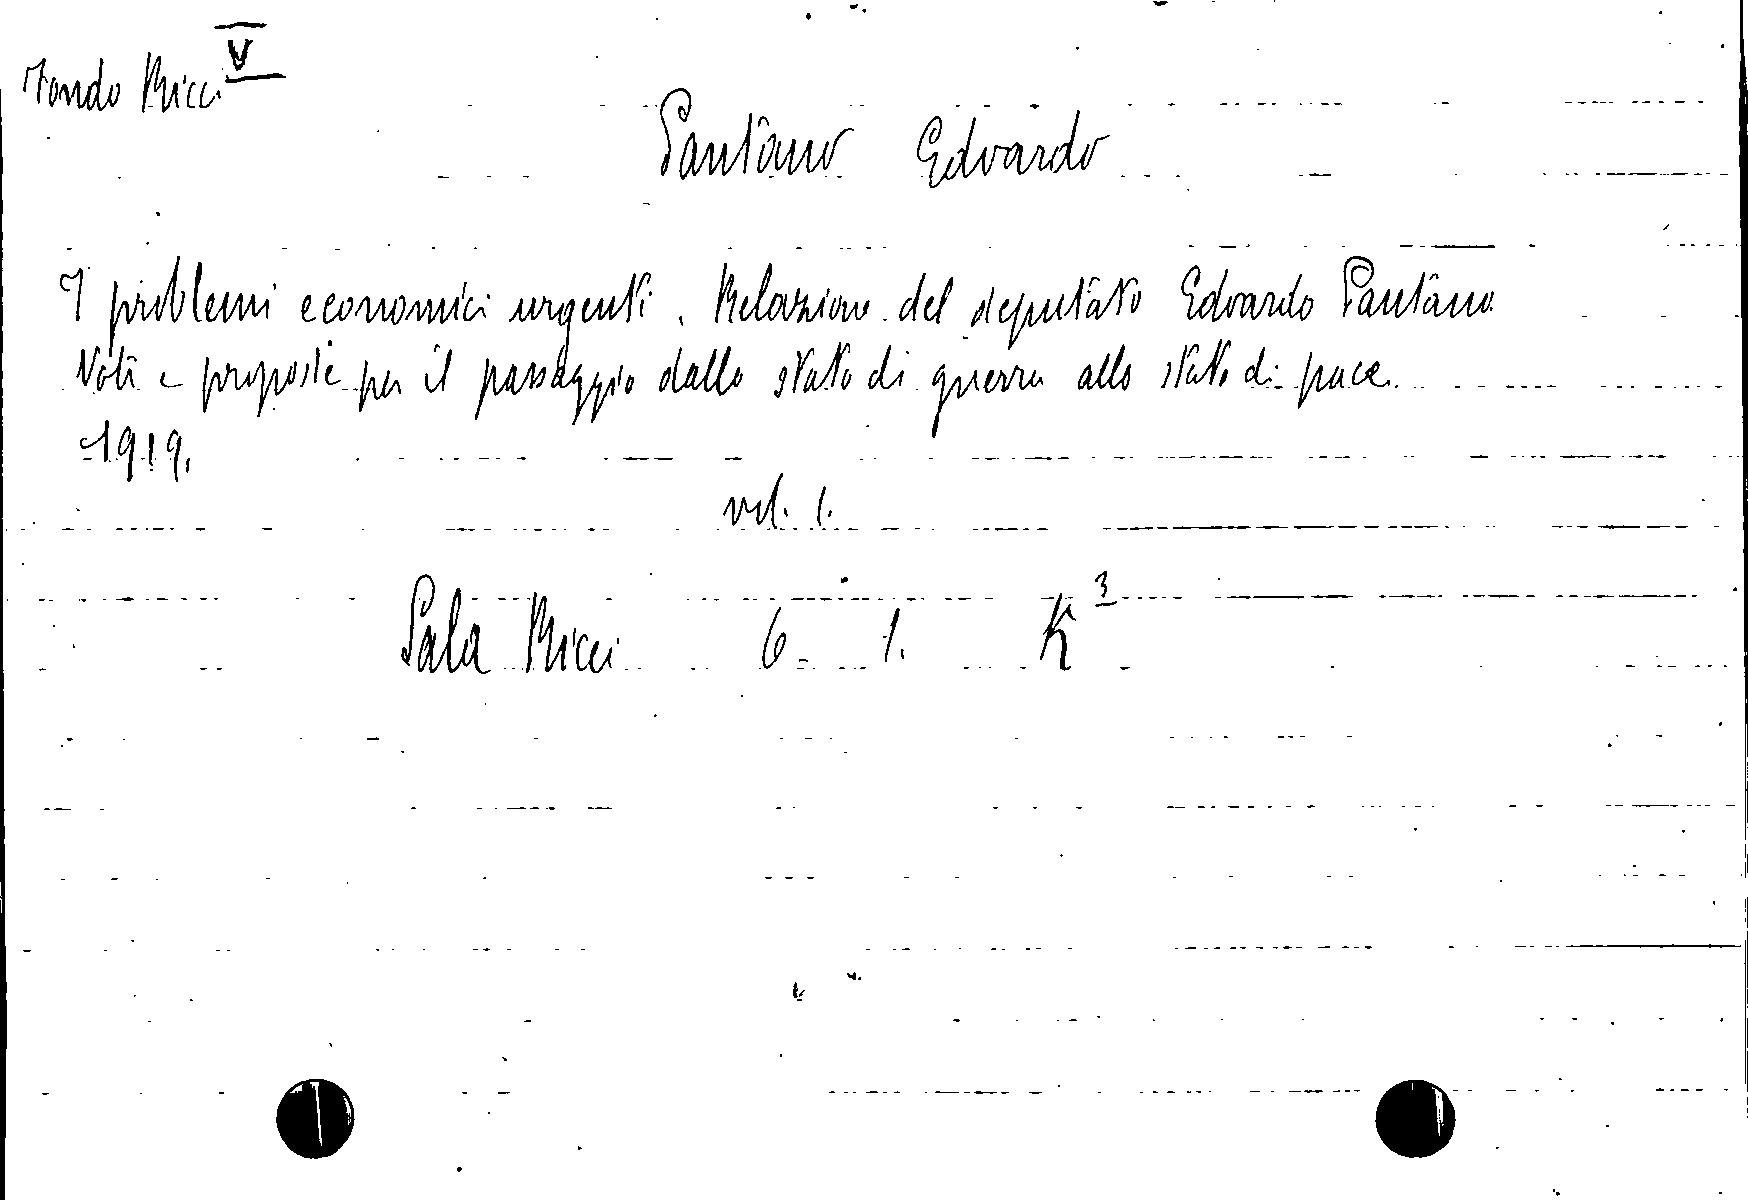 Fondo Ricci V
Pantano Edoardo
I problemi economici urgenti. Relazione del deputato Edoardo Pantano
Voti e proposte per il passaggio dallo stato di guerra allo stato di pace.
1919.
vol. 1.
Sala Ricci 6. 1. K³